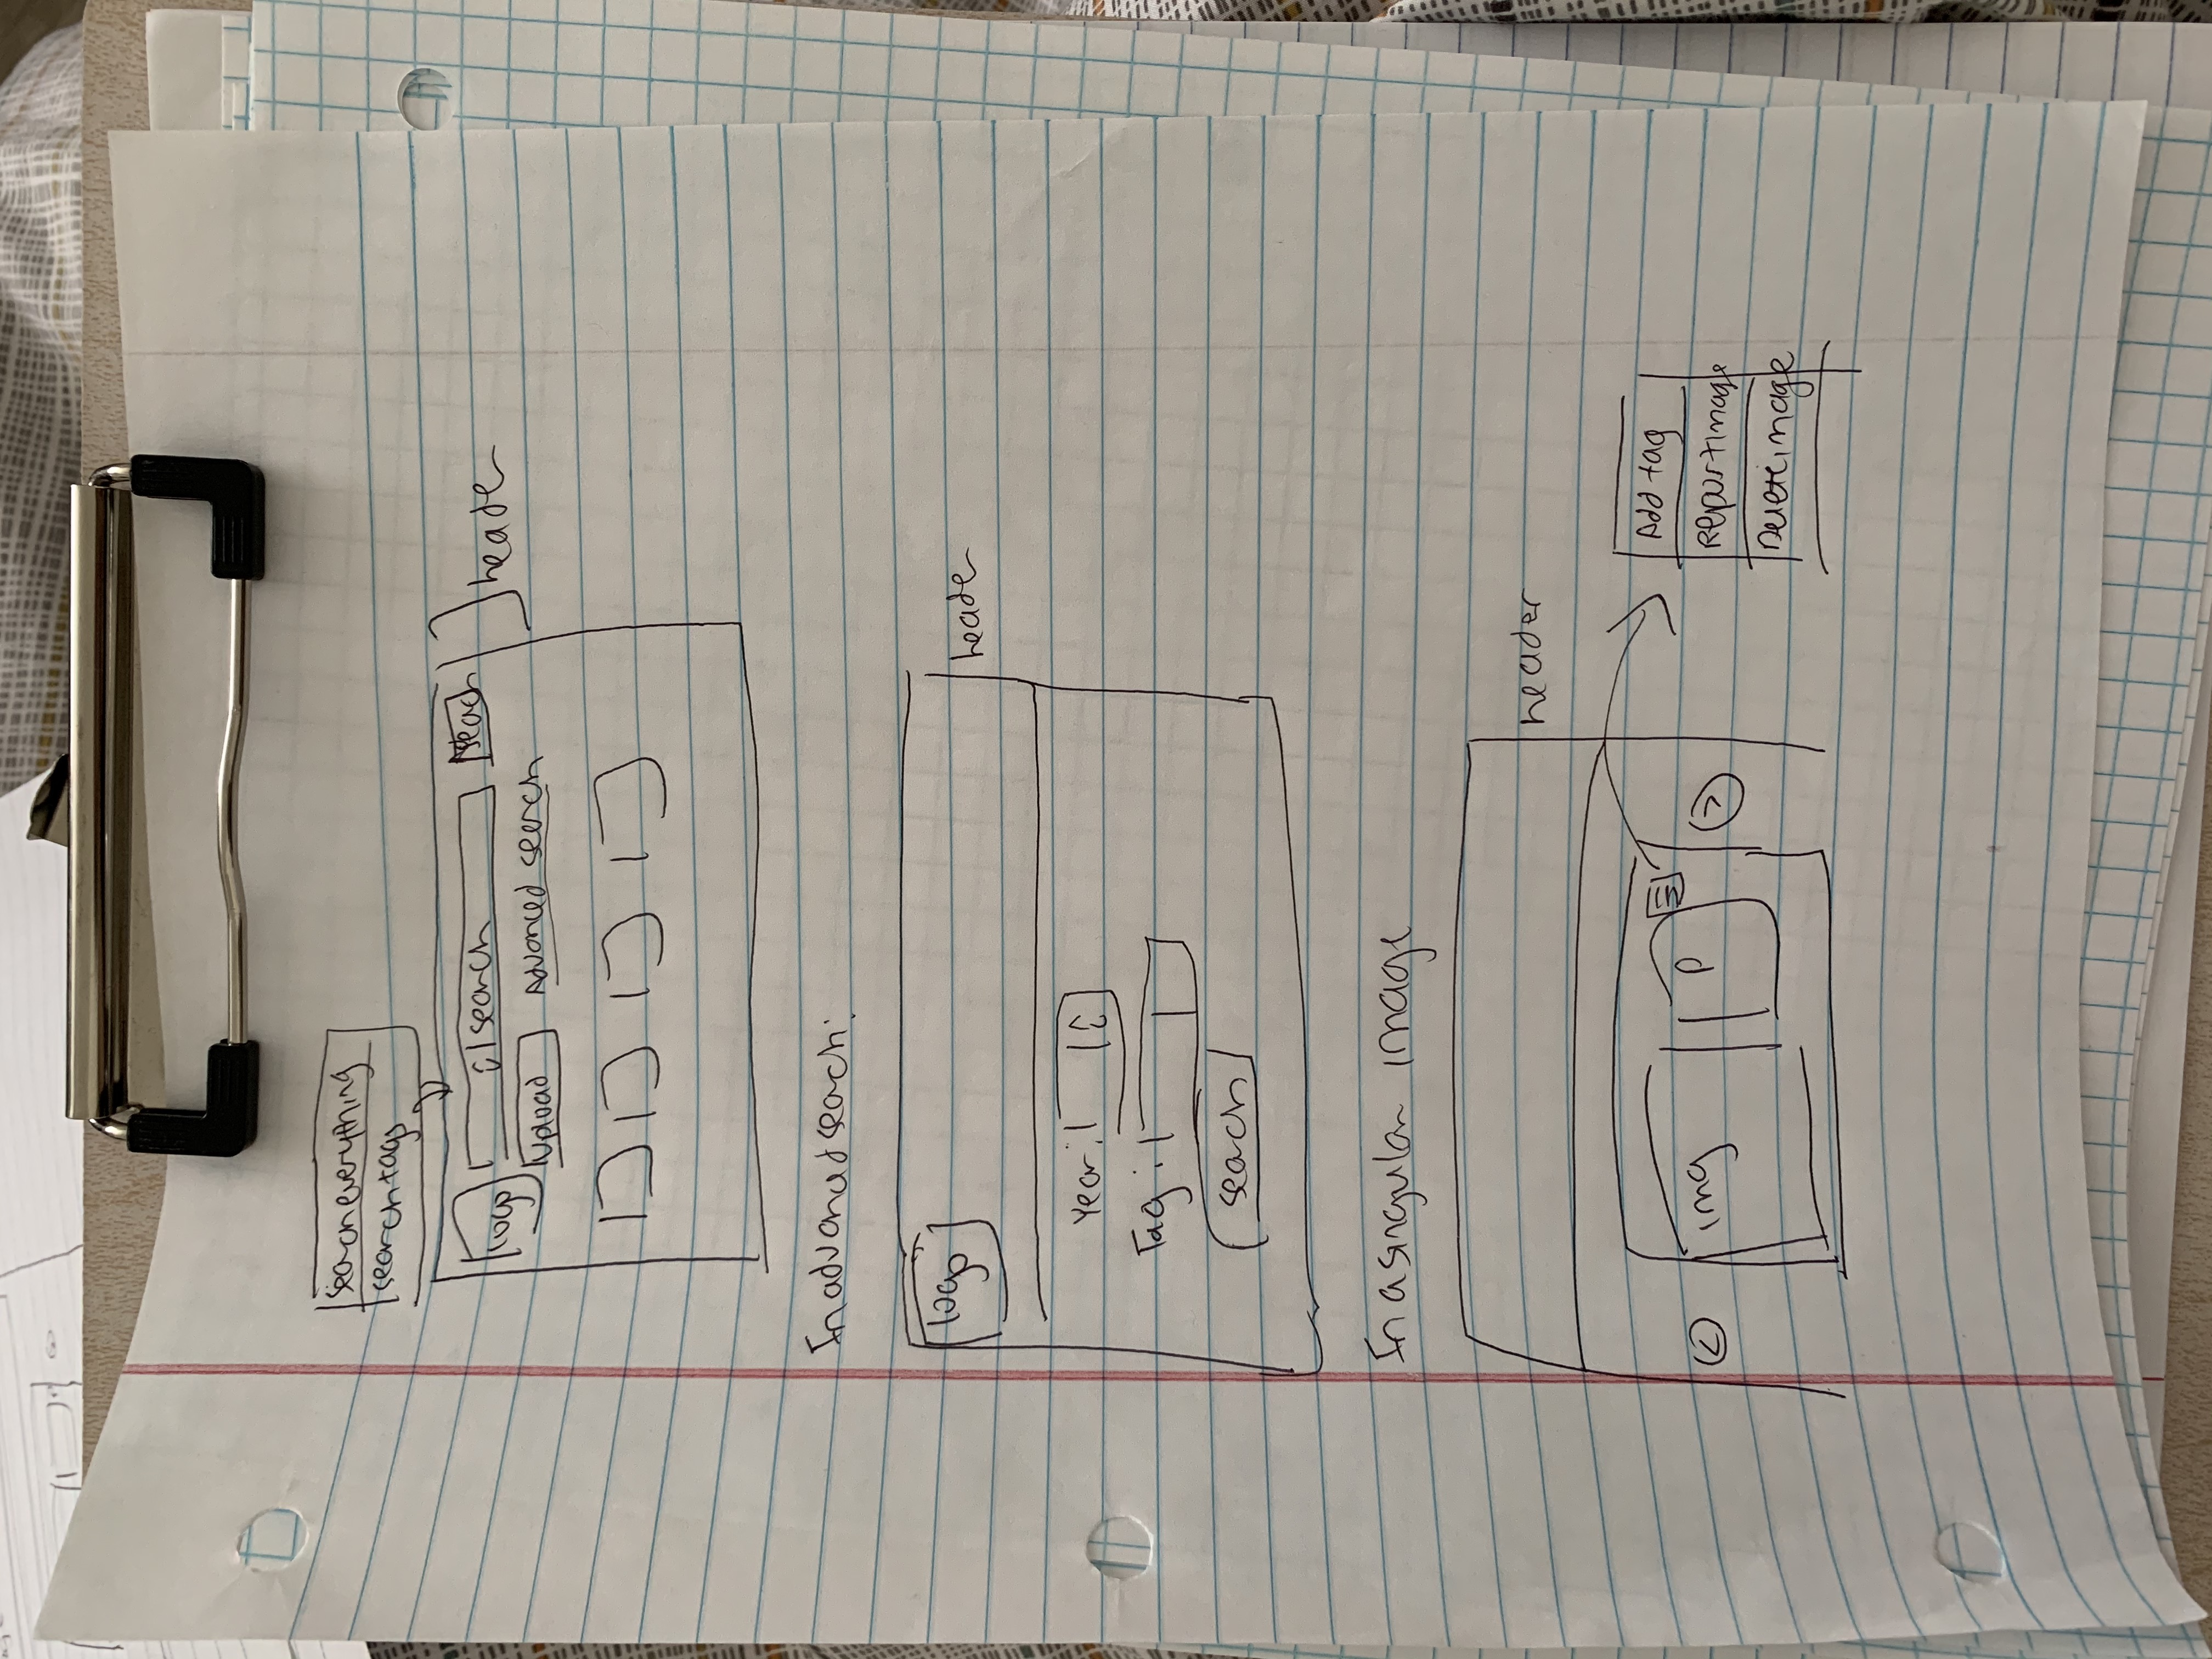 Search everything
search tags
logo
search
Search
header
Upload
Advanced search
In advanced search:
logo
header
Year:
Tag:
search
In a singular image
header
img
P
<
>
Add tag
Report image
Delete image